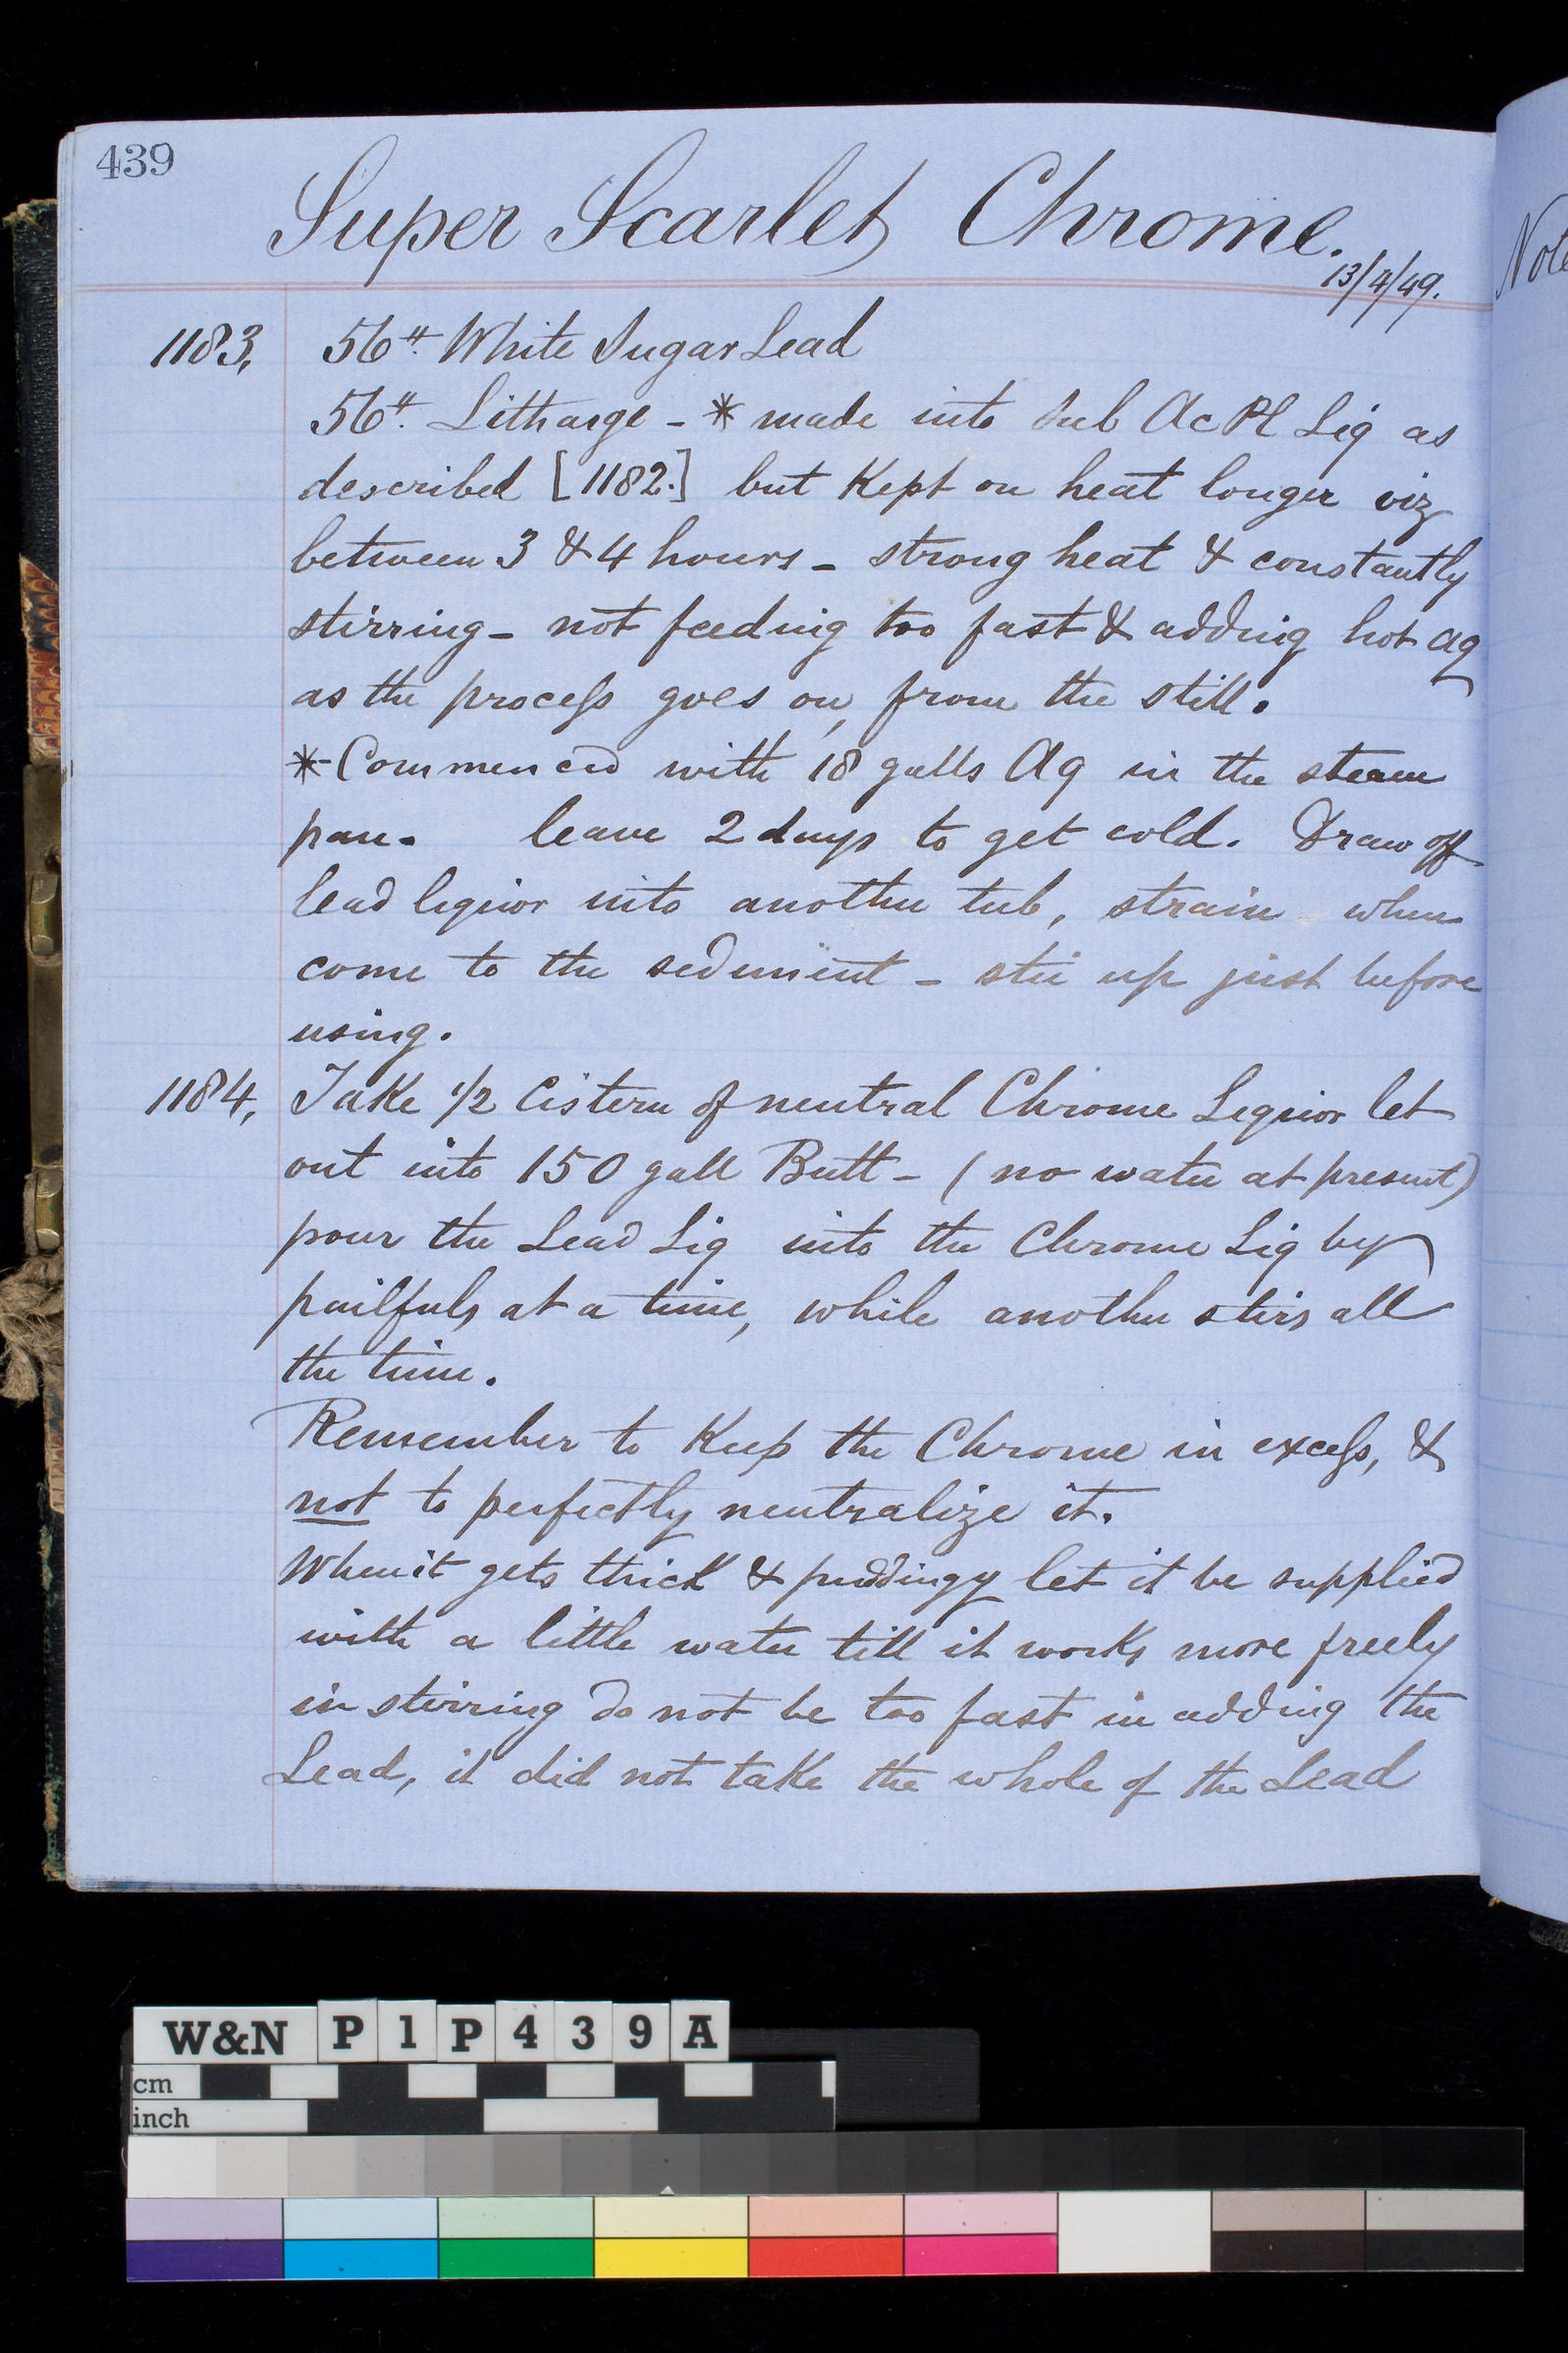 439
Super Scarlet Chrome.
13/4/49.
Note
1183, 56℔. White Sugar Lead
56℔. Litharge - * made into Sub Ac Pl Liq as
described [1182.] but Kept on heat longer viz
between 3 & 4 hours - strong heat & constantly
stirring - not feeding too fast & adding hot aq
as the process goes on, from the still.
* Commenced with 18 galls Aq in the steam
pan. leave 2 days to get cold. Draw off
lead liquor into another tub, strain when
come to the sediment - stir up just before
using.
1184, Take 1/2 Cistern of neutral Chrome Liquor let
out into 150 gall Butt - (no water at present)
pour the Lead Liq into the Chrome Liq by
pailfuls at a time, while another stirs all
the time.
Remember to Keep the Chrome in excess, &
not to perfectly neutralize it.
When it gets thick & puddingy let it be supplied
with a little water till it works more freely
in stirring do not be too fast in adding the
Lead, it did not take the whole of the Lead
W&N P1P439A
cm
inch